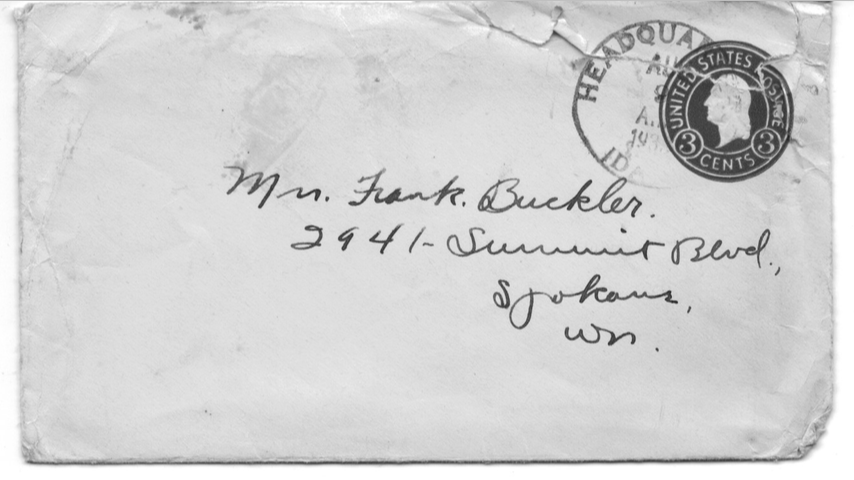 HEADQUA
UNITED STATES POSTAGE
3 CENTS 3
Mr. Frank. Buckler.
2941- Summit Blvd.,
Spokane,
Wn.